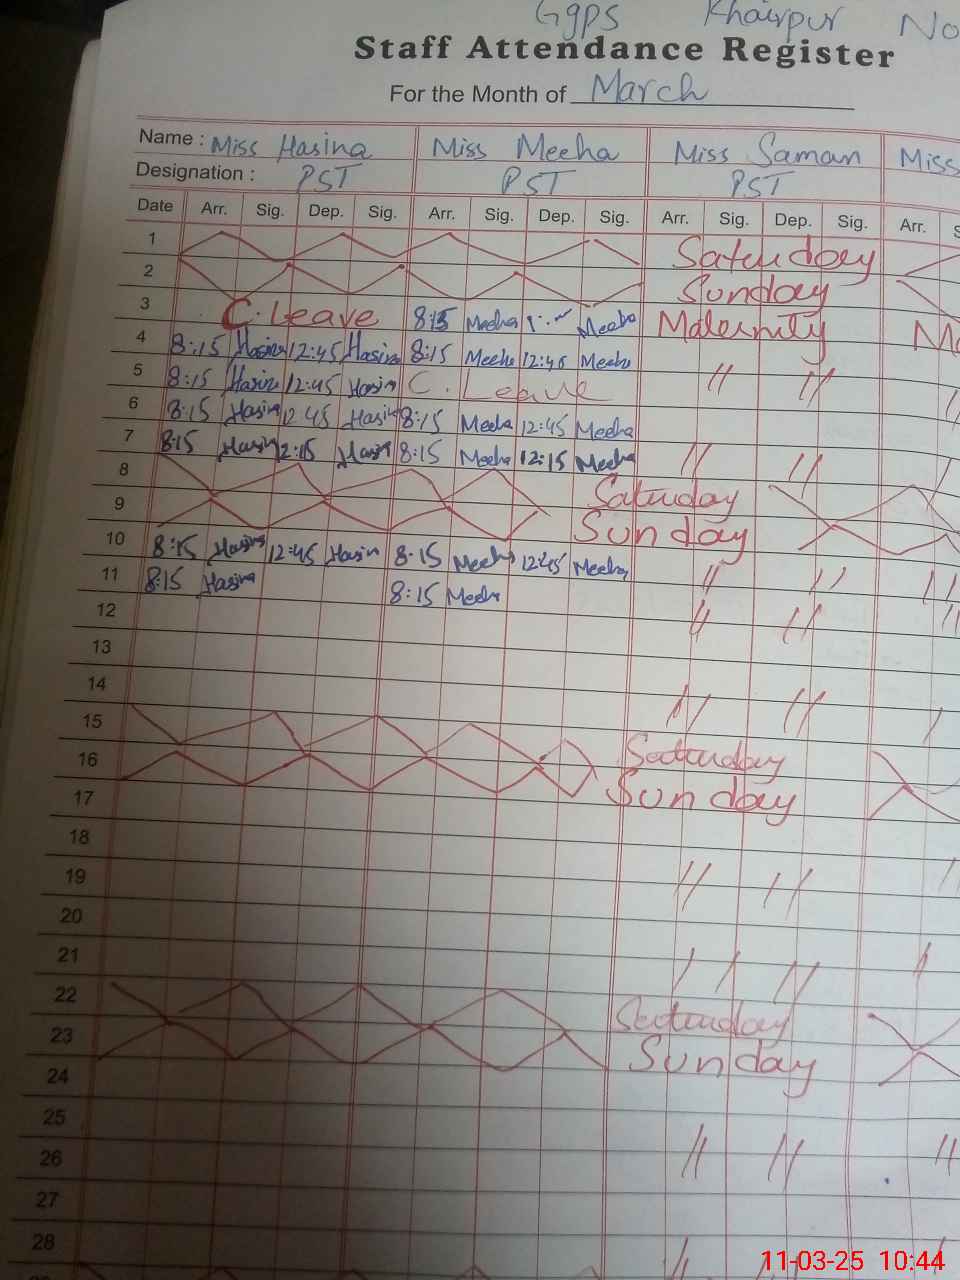 Ggps Khairpur No
Staff Attendance Register
For the Month of March
Name : Miss Hasina Miss Meeha Miss Saman Miss
Designation : PST PST PST
Date Arr. Sig. Dep. Sig. Arr. Sig. Dep. Sig. Arr. Sig. Dep. Sig. Arr. S
1 Saturday
2 Sunday
3 C. Leave 8:15 Meeha Meeha Maternity Ma
4 8:15 Hasina 12:45 Hasina 8:15 Meeha 12:45 Meeha
5 8:15 Hasina 12:45 Hasina C. Leave " "
6 8:15 Hasina 12:45 Hasina 8:15 Meeha 12:45 Meeha
7 8:15 Hasina 12:15 Hasina 8:15 Meeha 12:15 Meeha " "
8 Saturday
9 Sunday
10 8:15 Hasina 12:45 Hasina 8:15 Meeha 12:45 Meeha " " "
11 8:15 Hasina 8:15 Meeha " " "
12
13
14 " "
15 Saturday
16 Sunday
17
18
19 " " "
20
21 " "
22 Saturday
23 Sunday
24
25
26 " " "
27
28
11-03-25 10:44